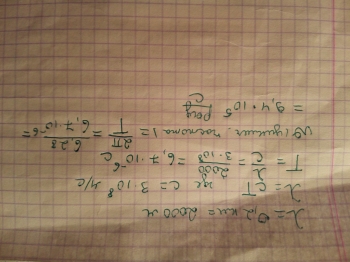 λ = 0,2 км = 2000 м
λ = cT где c = 3·10⁸ м/с
T = λ/c = 2000/3·10⁸ = 6,7·10⁻⁶ с
частота) = 2π/T = 6,28/6,7·10⁻⁶ =
= 9,4·10⁵ рад/с